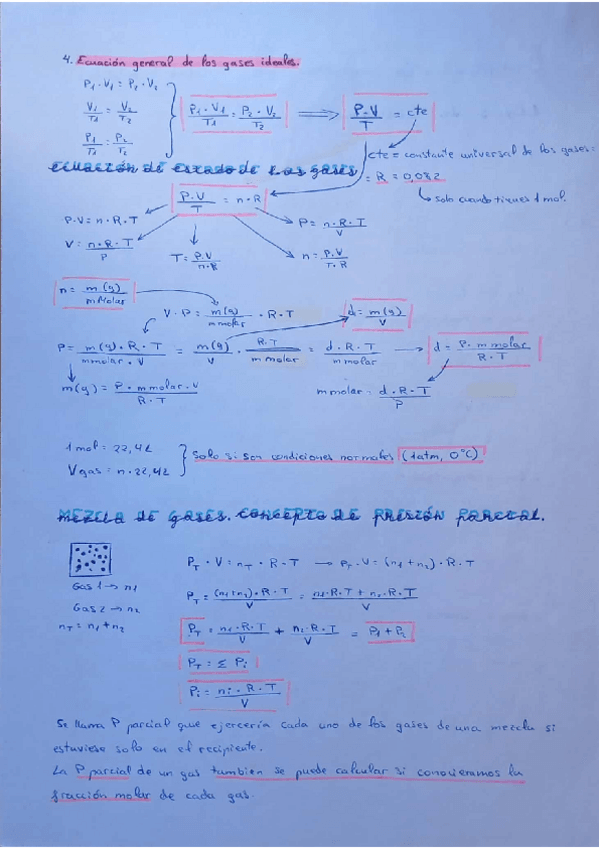 4. Ecuación general de los gases ideales.
P₁·V₁ = P₂·V₂
V₁/T₁ = V₂/T₂
P₁/T₁ = P₂/T₂
P₁·V₁/T₁ = P₂·V₂/T₂ ⟹ P.V/T = cte
cte = constante universal de los gases:
= R = 0,082
solo cuando tienes 1 mol.
ECUACIÓN DE ESTADO DE LOS GASES
P.V/T = n·R
P·V = n·R·T
V = n·R·T/P
T = P.V/n·R
n = P.V/T·R
P = n·R·T/V
n = m(g)/mmolar
V·P = m(g)/mmolar · R·T
d = m(g)/V
P = m(g)·R·T/mmolar·V = m(g)/V · R·T/mmolar = d·R·T/mmolar → d = P·mmolar/R·T
m(g) = P·mmolar·V/R·T
mmolar = d·R·T/P
1 mol = 22,4L
Vgas = n·22,4L
solo si son condiciones normales (1atm, 0°C)
MEZCLA DE GASES. CONCEPTO DE PRESIÓN PARCIAL.
Gas 1 → n₁
Gas 2 → n₂
nT = n₁+n₂
PT·V = nT·R·T → PT·V = (n₁+n₂)·R·T
PT = (n₁+n₂)·R·T/V = n₁·R·T+n₂·R·T/V
PT = n₁·R·T/V + n₂·R·T/V = P₁+P₂
PT = Σ Pi
Pi = ni·R·T/V
Se llama P parcial que ejercería cada uno de los gases de una mezcla si
estuviese solo en el recipiente.
La P parcial de un gas tambien se puede calcular si conocieramos la
fracción molar de cada gas.